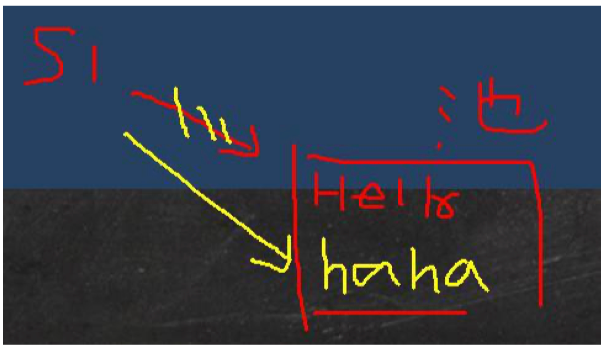 S1
池
Hello
haha